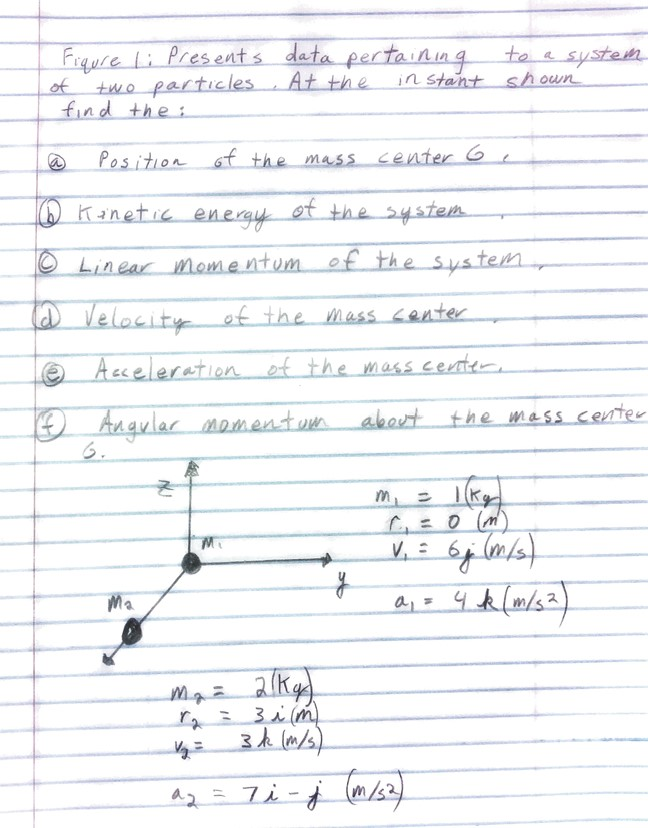 Figure 1: Presents data pertaining to a system
of two particles. At the instant shown
find the:
ⓐ Position of the mass center G.
ⓑ Kinetic energy of the system.
ⓒ Linear momentum of the system.
ⓓ Velocity of the mass center.
ⓔ Acceleration of the mass center.
ⓕ Angular momentum about the mass center
G.
z
m₁
y
m₂
m₁ = 1 (kg)
r₁ = 0 (m)
v₁ = 6j (m/s)
a₁ = 4 k (m/s²)
m₂ = 2 (kg)
r₂ = 3 i (m)
v₂ = 3 k (m/s)
a₂ = 7 i - j (m/s²)